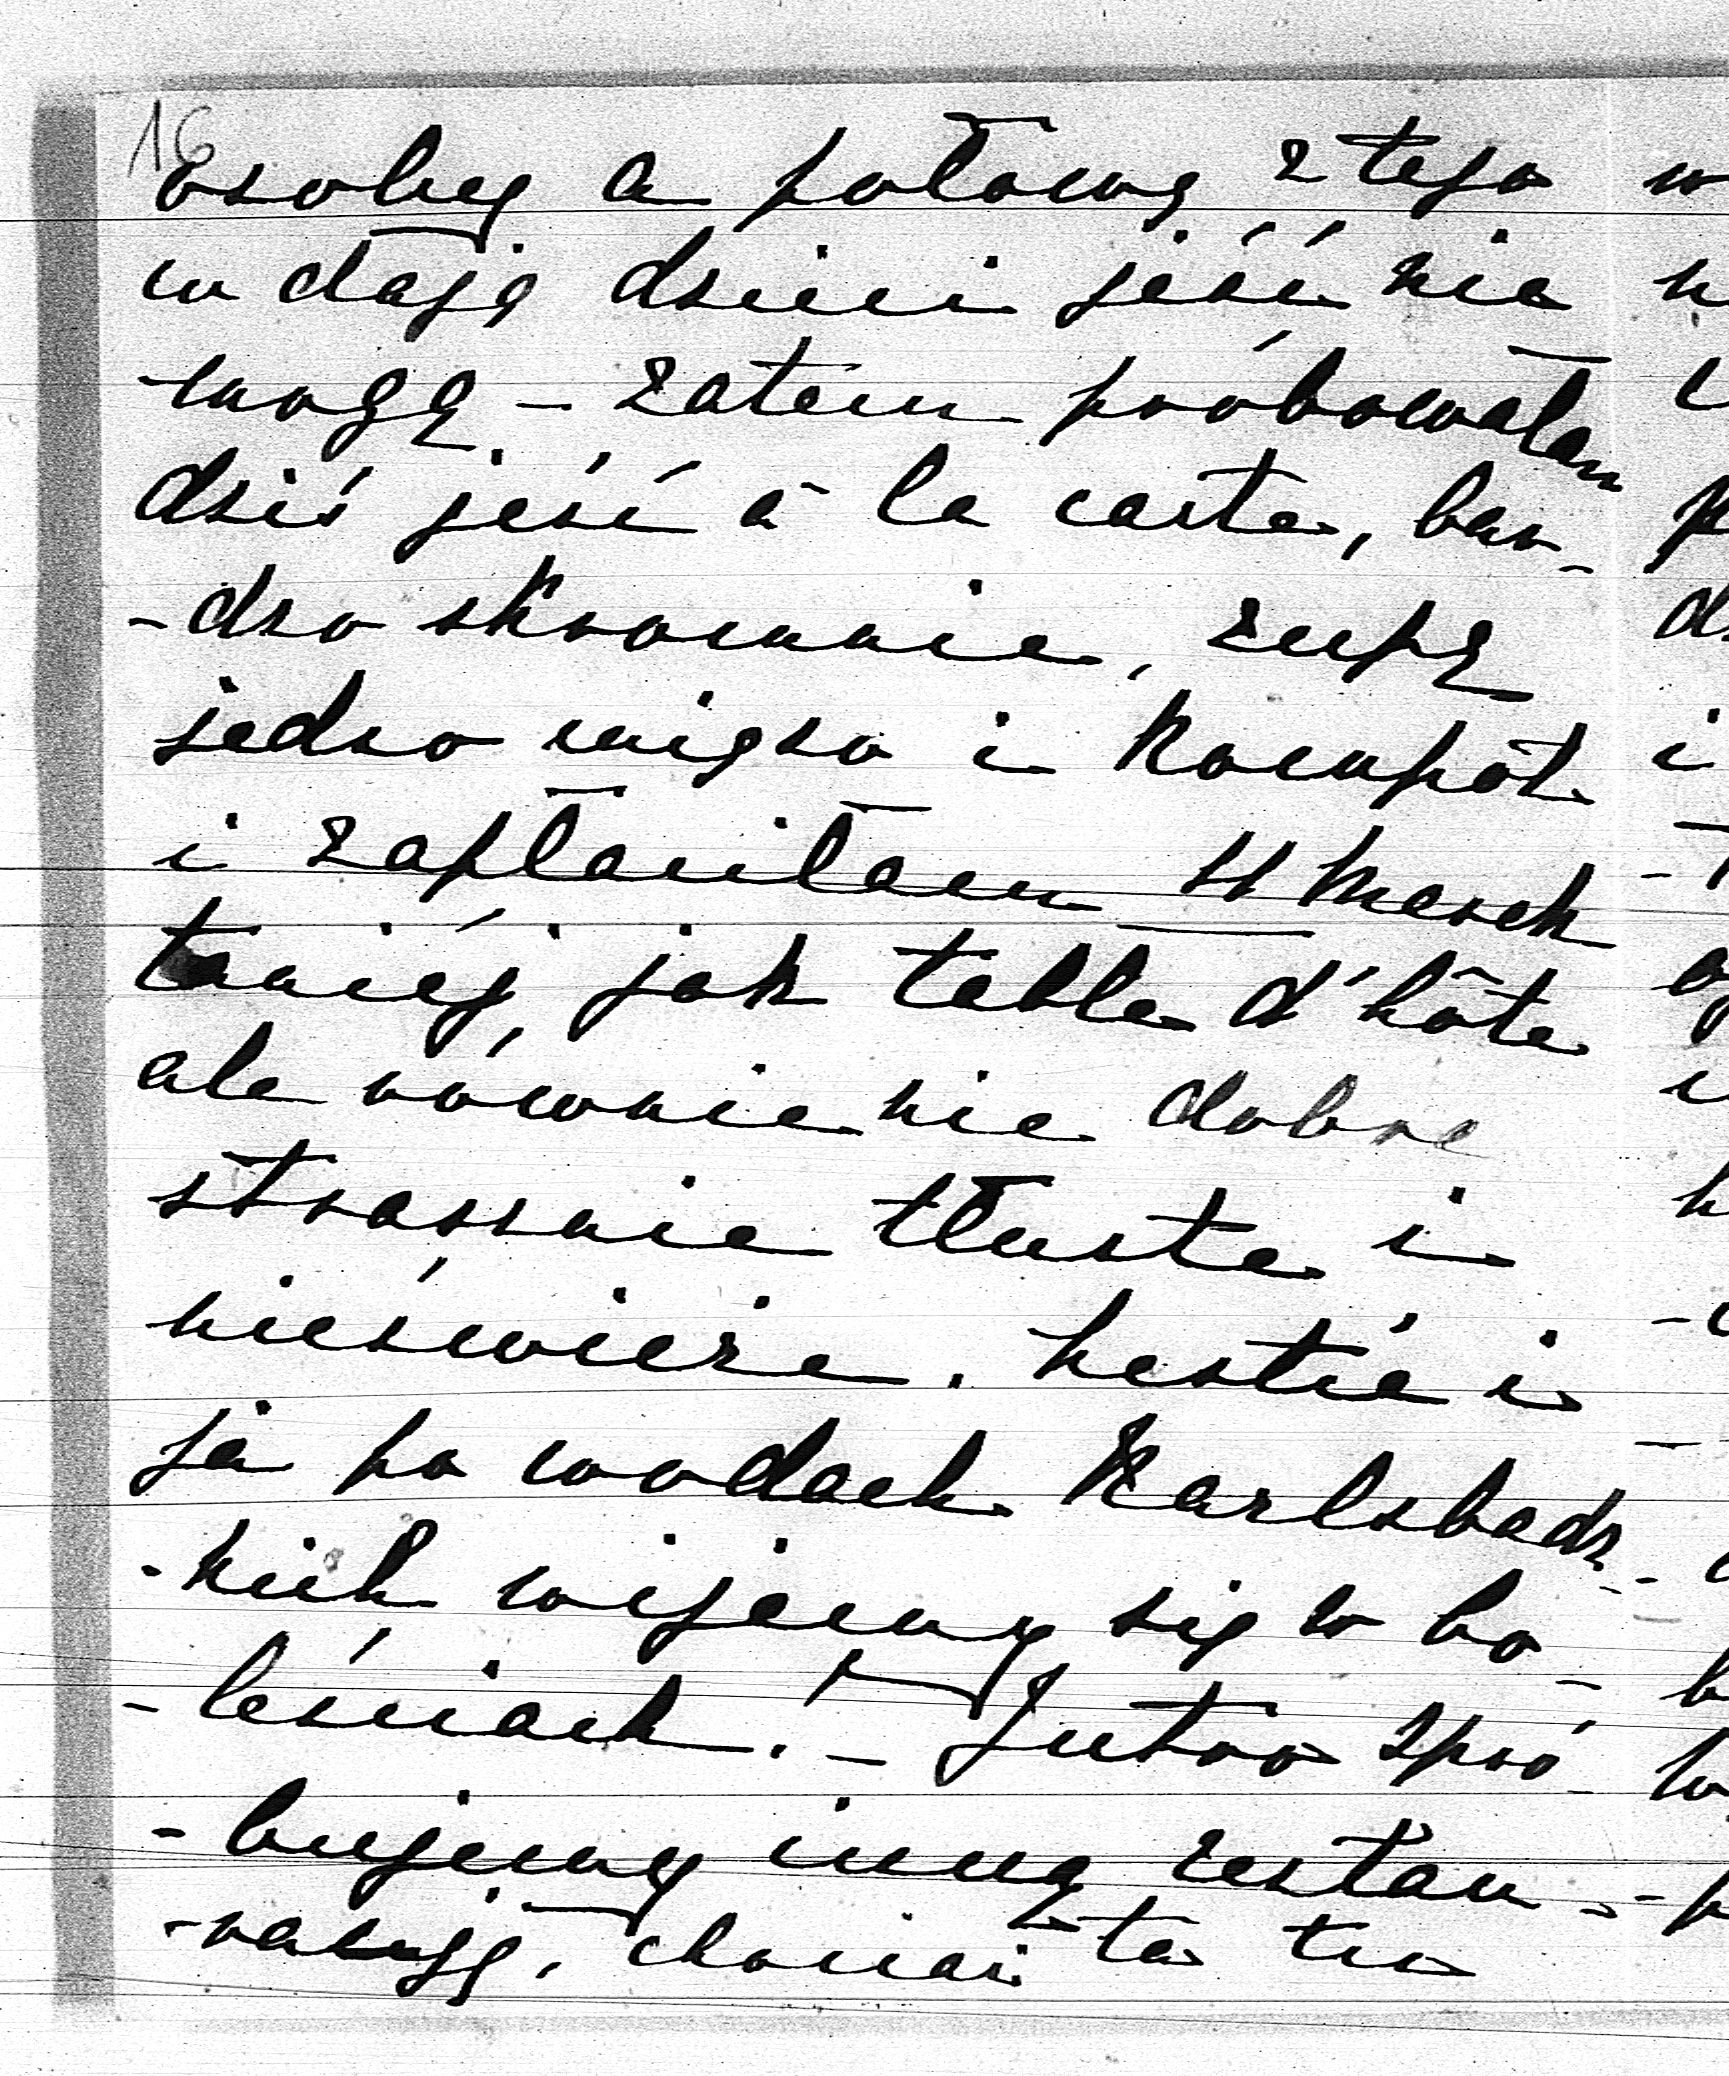 16
osoby a połowę z tego
co dają dzieci jeść nie
mogą – zatem próbowałam
dziś jeść à la carte, bar-
-dzo skromnie, zupę
jedno mięso i kompot
i zapłaciłam 4 marek
taniéj, jak table d'hôte
ale równie nie dobre
strasznie tłuste i
nieświeże. hestie i
ja po wodach Karlsbadz-
-kich wijemy się w bo-
-leściach. – Jutro spró-
-bujemy inną restau-
-racyję, chociaż ta tu